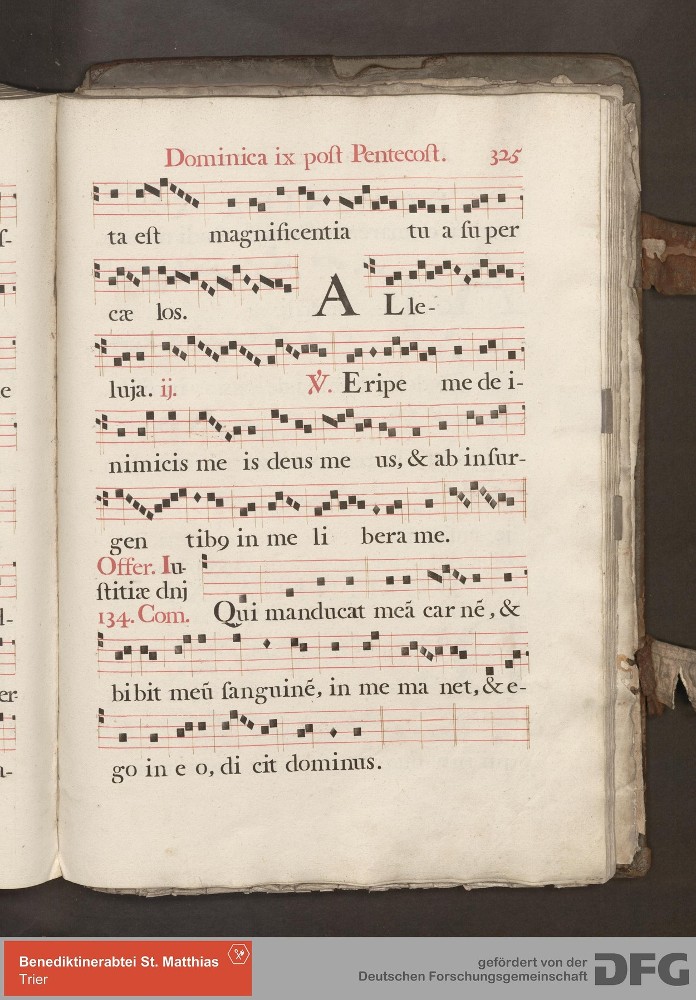 Dominica ix poſt Pentecoſt. 325
ta eſt magnificentia tu a ſu per
cæ los. A L le-
luja. ij. ℣. Eripe me de i-
nimicis me is deus me us, & ab inſur-
gen tibꝯ in me li bera me.
Offer. Iu-
ſtitiæ dnj
134. Com. Qui manducat meā car nē, &
bibit meū ſanguinē, in me ma net, & e-
go in e o, di cit dominus.
ſ-
e
d-
er-
a-
Benediktinerabtei St. Matthias
Trier
gefördert von der
Deutschen Forschungsgemeinschaft
DFG